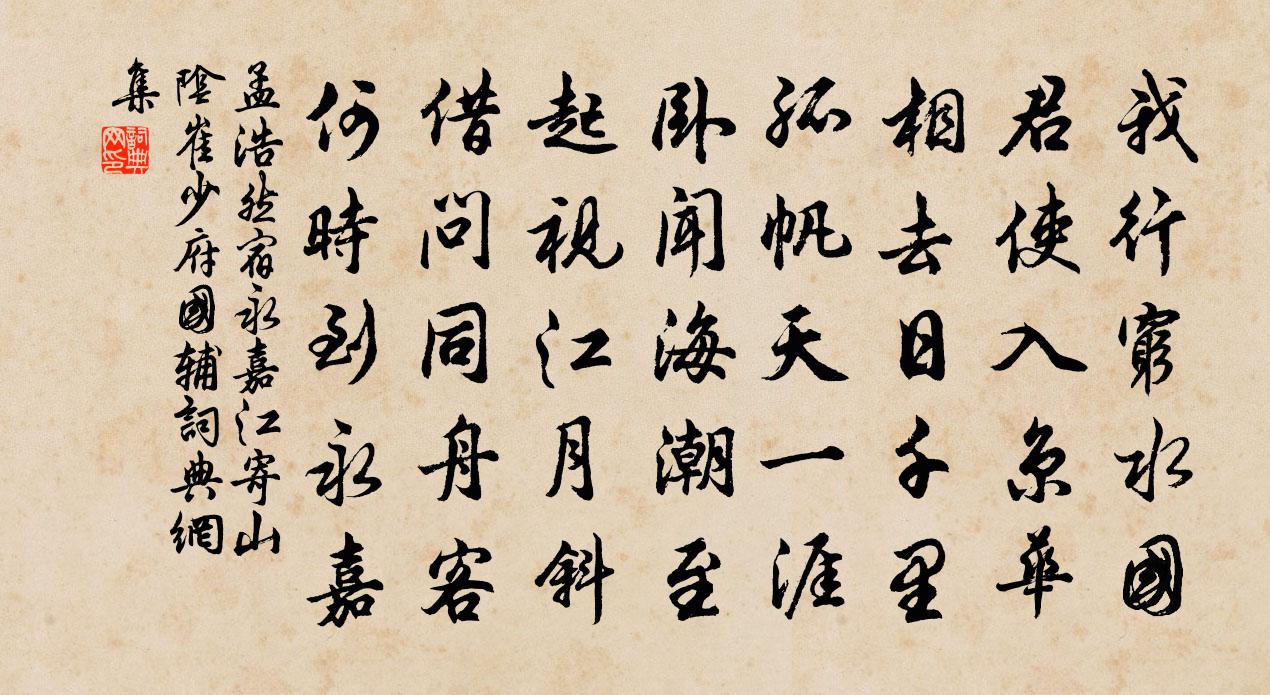 我行窮水國
君使入京華
相去日千里
孤帆天一涯
臥聞海潮至
起視江月斜
借問同舟客
何時到永嘉
孟浩然宿永嘉江寄山
陰崔少府國輔詞典網
集
詞典
网印